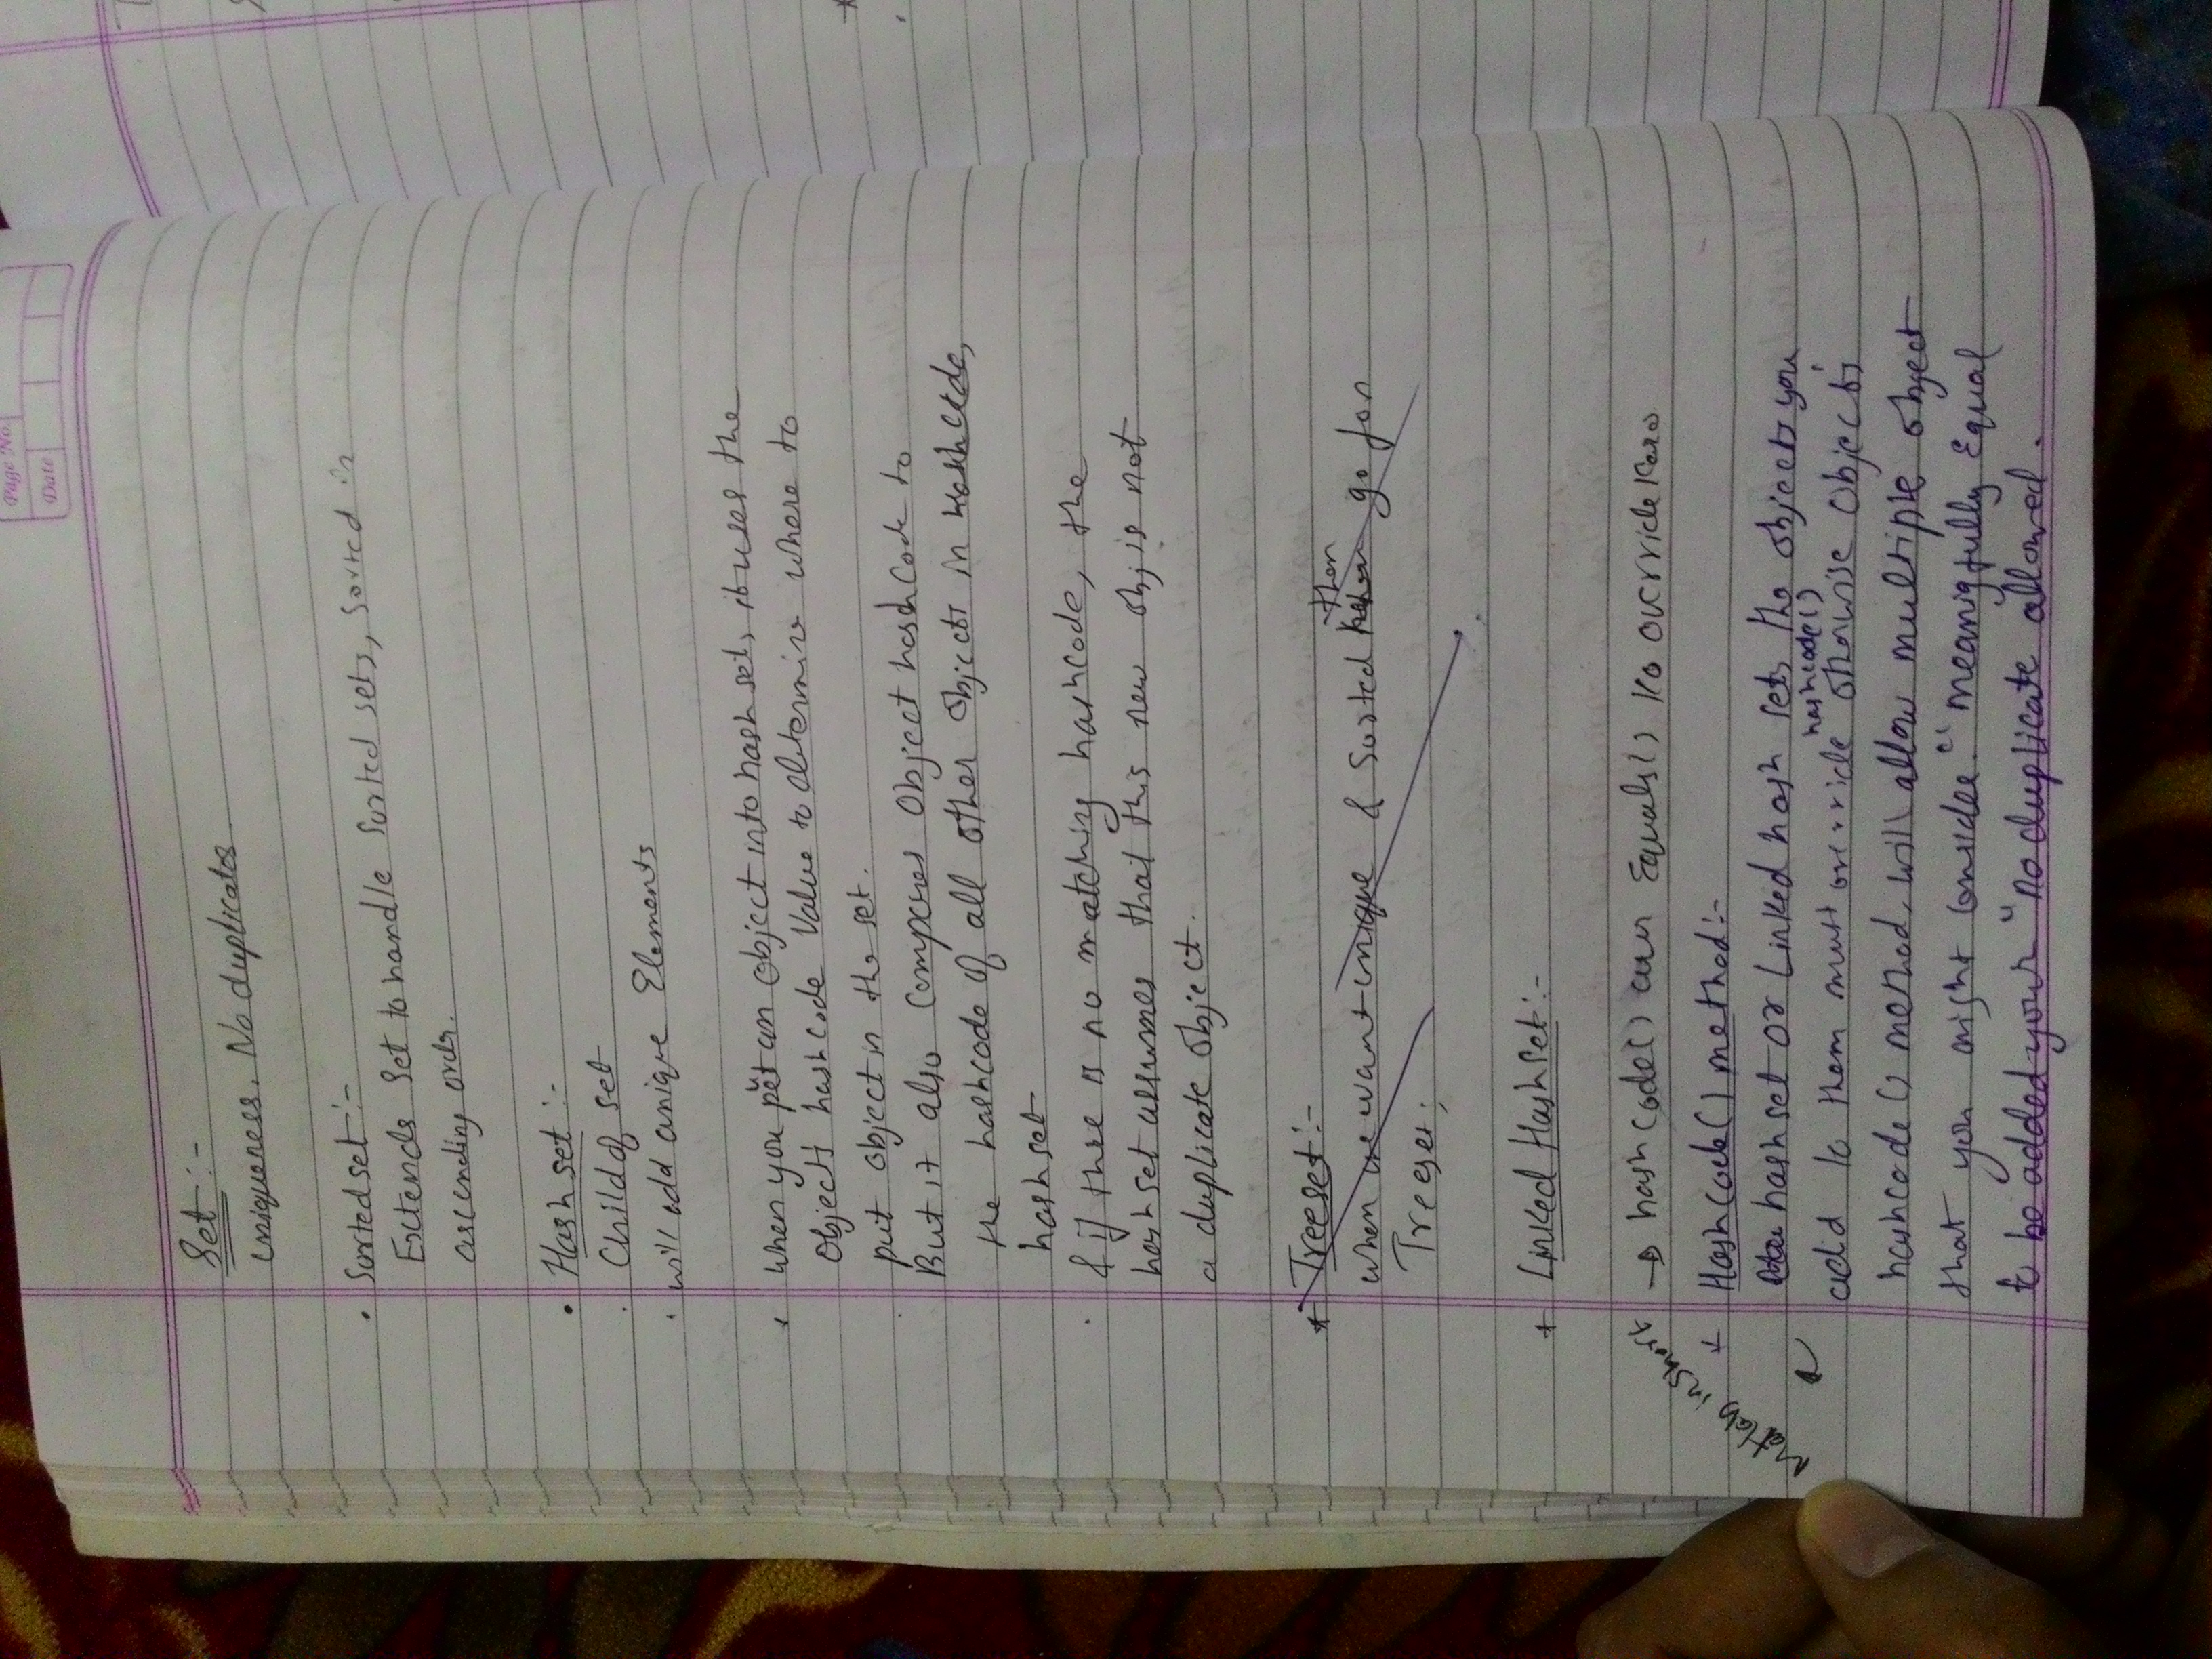 Page No.
Date
Set :-
Uniqueness. No duplicates.
• Sorted set :-
Extends Set to handle Sorted sets, Sorted in
ascending order.
• Hash set :-
. Child of set
. will add unique Elements
. When you put an object into hash set, it uses the
object's hashcode Value to determine where to
put object in the set.
But it also Compares Object hashCode to
the hashcode of all other objects in hashcode,
hashset
& if there is no matching hashcode, the
hashset assumes that this new obj is not
a duplicate object.
* Treeset :-
then
when we want unique & Sorted go for
Treeset;
* Linked HashSet :-
→ hashCode() aur Equals() Ko override Karo
Matlab in Short
* HashCode() method :-
hashset or Linked hash set, the objects you
hashcode()
add to them must override otherwise Object's
hashcode() method, will allow multiple object
that you might consider "meanigfully Equal
to be added your "no duplicate allowed.